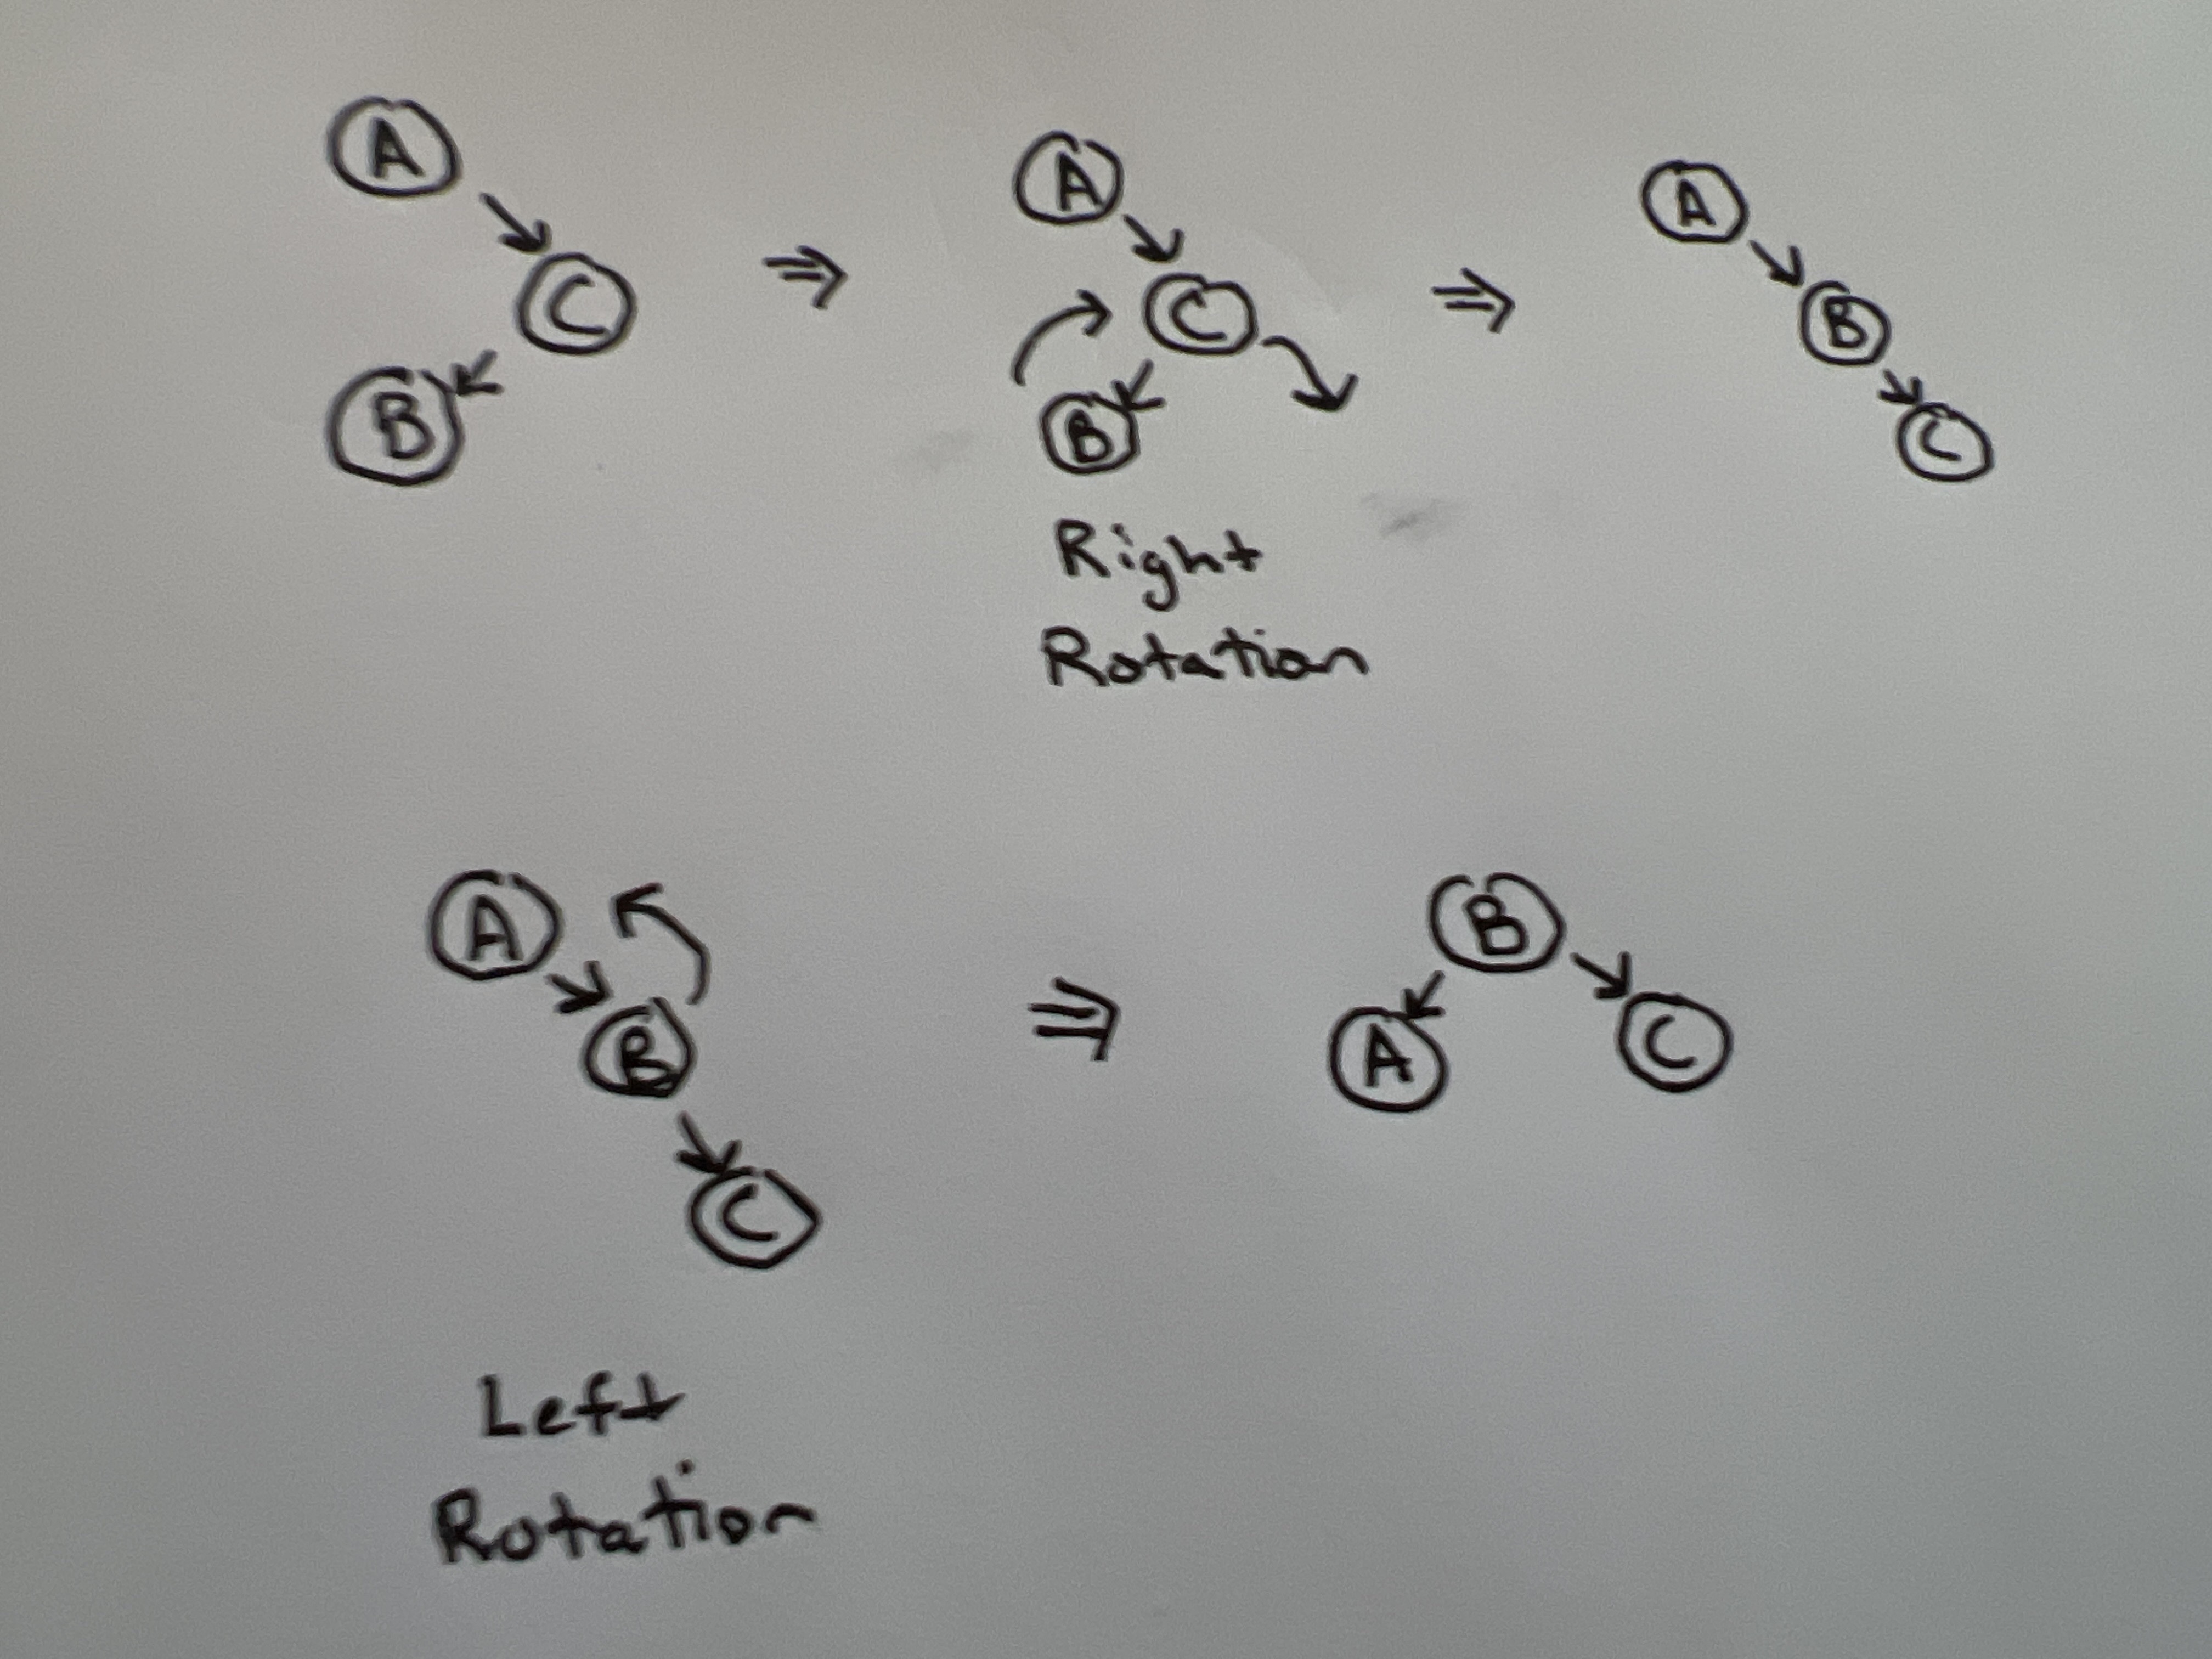 A
C
B
⇒
A
C
B
⇒
A
B
C
Right
Rotation
A
B
C
⇒
B
A
C
Left
Rotation